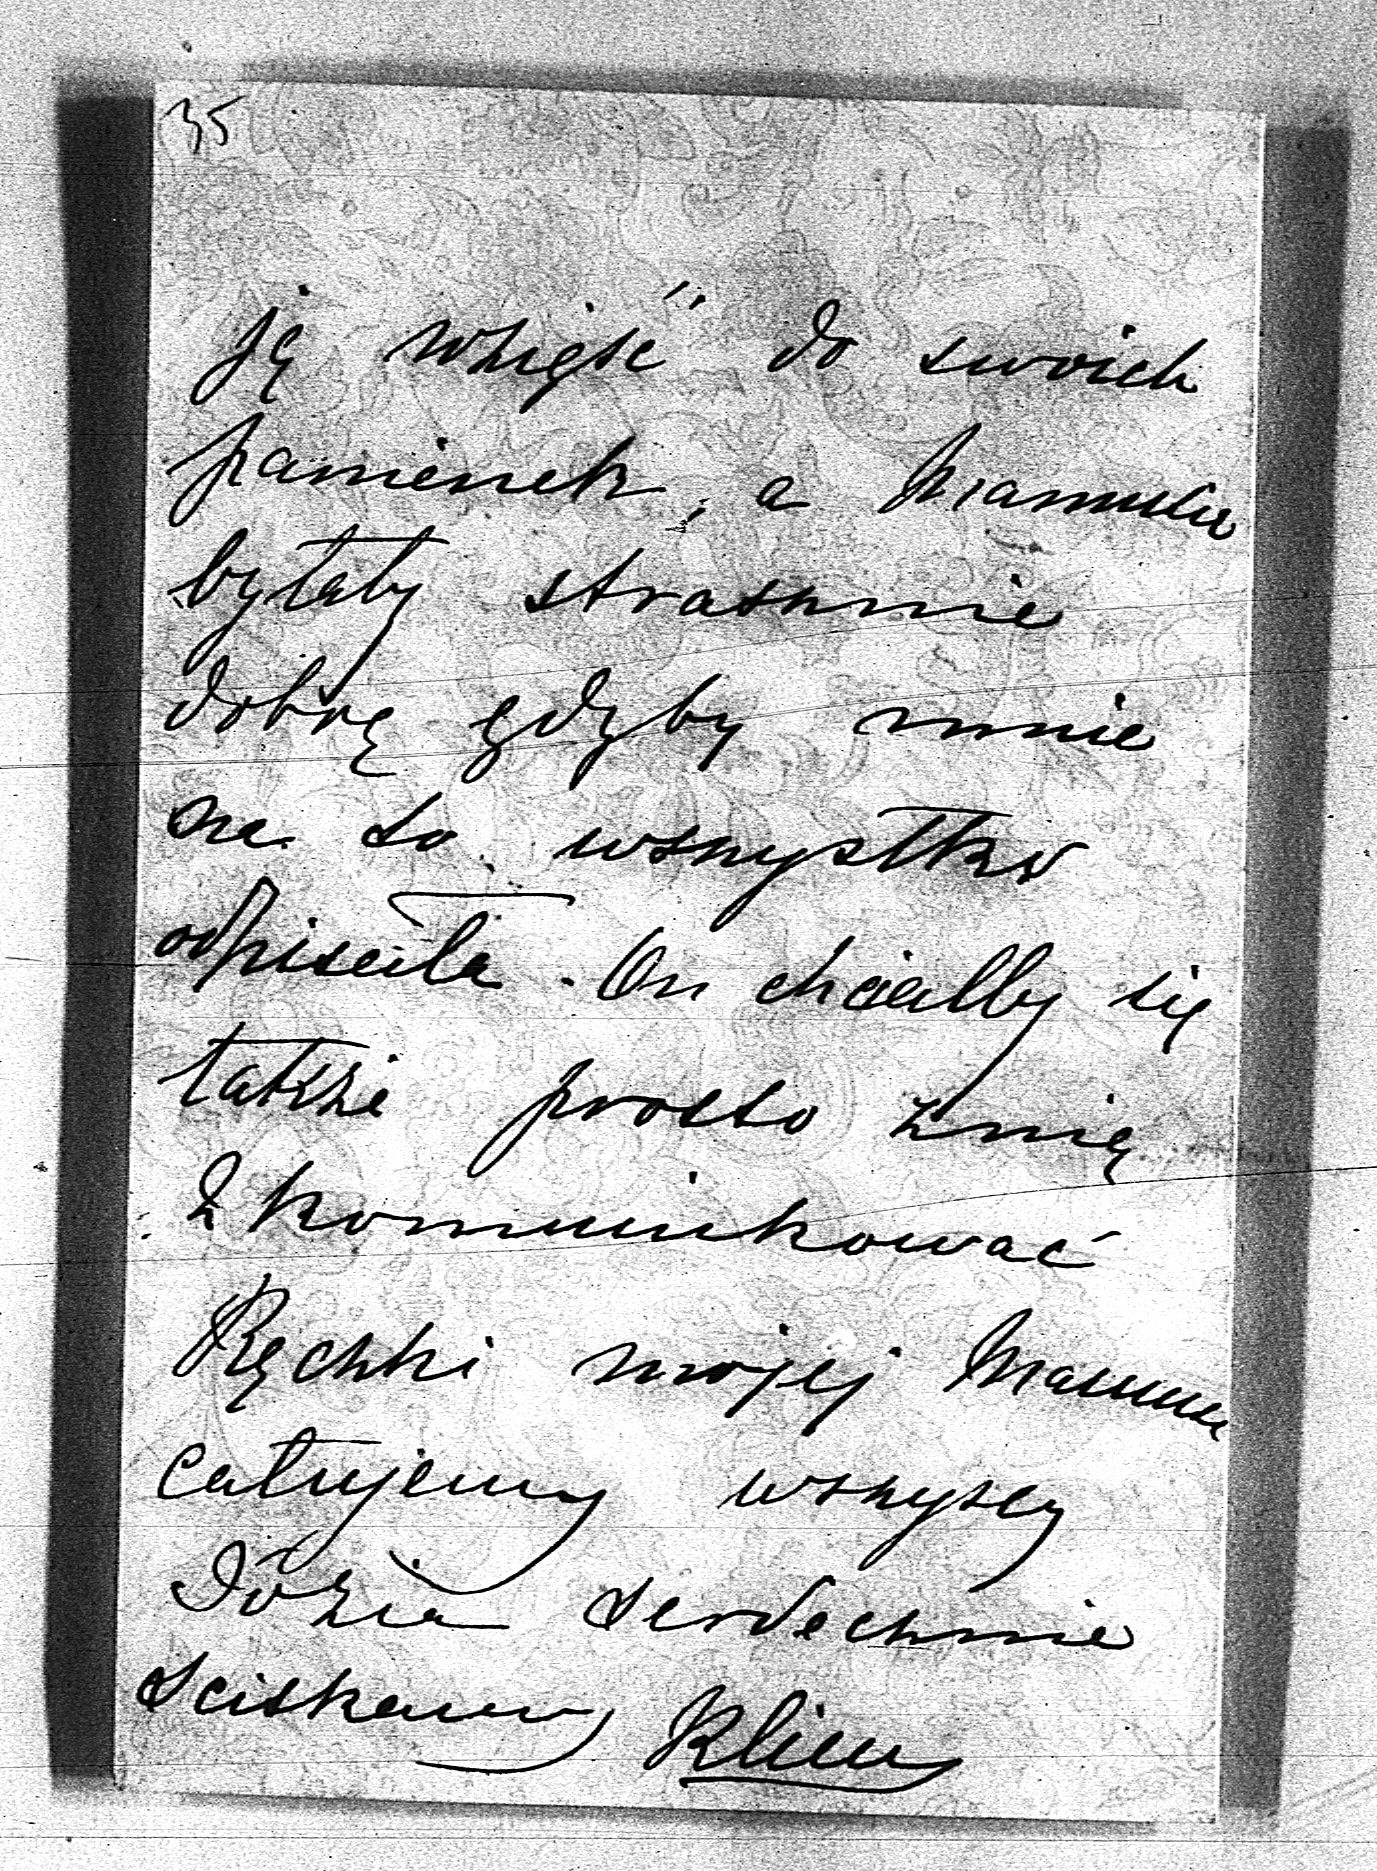 35
ję wziąść do swoich
panienek, a Mamusia
byłaby strasznie
dobrą gdyby mnie
na to wszystko
odpisała. On chciałby się
także prosto z nią
zkomunikować
Rączki mojej Mamusi
całujemy wszyscy
Józia serdecznie
sciskamy Klim